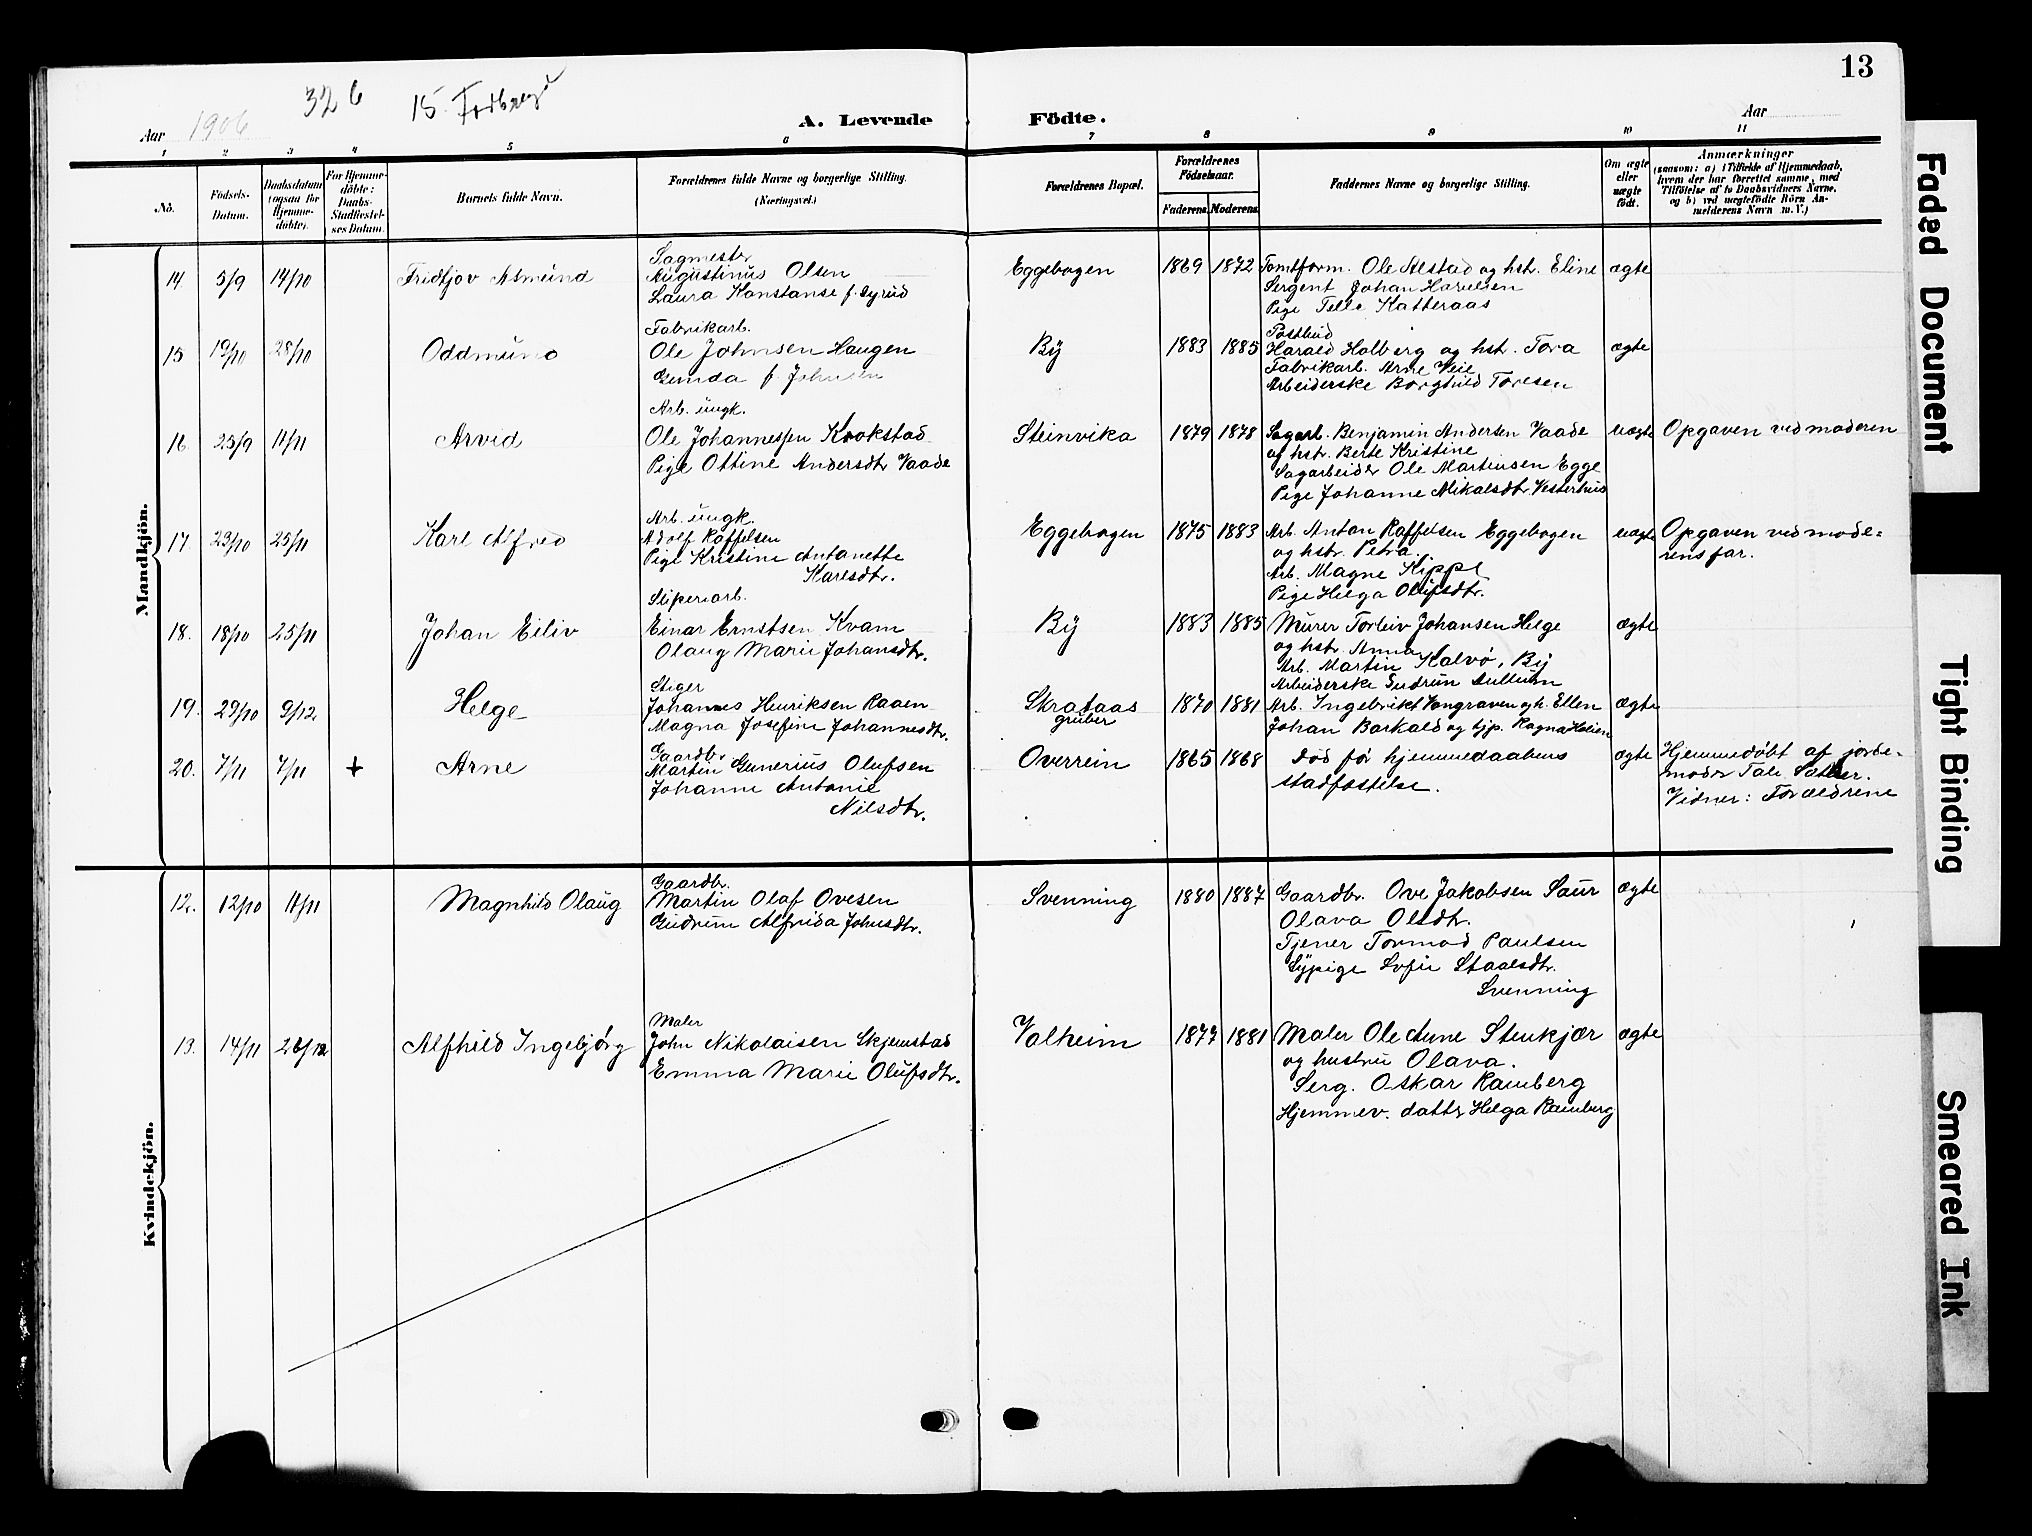 13
326 15.
Aar 1906 A. Levende Födte. Aar
1 2 3 4 5 6 7 8 9 10 11
No. Födsels-Datum. Daabsdatum (ogsaa for Hjemme-döbte). For Hjemme-döbte: Daabs-Stadfæstelses Datum. Barnets fulde Navn. Forældrenes fulde Navne og borgerlige Stilling. (Næringsvei.) Forældrenes Bopæl. Forældrenes Födselsaar. Faderens. Moderens. Faddernes Navne og borgerlige Stilling. Om ægte eller uægte födt. Anmærkninger
(saasom: a) i Tilfælde af Hjemmedaab, hvem der har forrettet samme, med Tilföielse af to Daabsvidners Navne, og b) ved uægtefödte Börn Anmelderens Navn m. V.)
Mandkjön.
14. 5/9 14/10 Fridtjov Asmund
Sagmester
Augustinus Olsen
Laura Konstanse f. Syrud
Eggebogen 1869 1872
Tomtform. Ole Alstad og hst. Eline
Sergent Johan
Pige Katteraas
ægte
15 19/10 28/10 Oddmund
Fabrikarb.
Ole Johnsen Haugen
Gunda f. Johnsen
By 1883 1885
Postbud
Harald Holberg og hst. Tora
Fabrikarb. Arne Veie
Arbeiderske Borghild Toresen
ægte
16 25/9 11/11 Arvid
Arb. ungk.
Ole Johannessen Krokstad
Pige Ottine Andersdtr Vaade
Steinvika 1879 1878
Sagarb. Benjamin Andersen Vaade
og hst. Berte Kristine
Sagarbeider Ole Martinsen Egge
Pige Johanne Mikalsdtr. Vesterhus
uægte
Opgaven ved moderen
17 23/10 25/11 Karl Alfred
Arb. ungk.
Adolf Raffelsen
Pige Kristine Antonette
Karlsdtr.
Eggebogen 1875 1883
Arb. Anton Raffelsen Eggebogen
og hst. Petra.
Arb. Magne Kippe
Pige Helga Olufsdtr.
uægte
Opgaven ved mode-
rens far.
18. 18/10 25/11 Johan Eiliv
Sliperiarb.
Einar Ernstsen Kvam
Olaug Marie Johansdtr.
By 1883 1885
Murer Torleiv Johansen Helge
og hst. Anna
Arb. Martin Kalvö, By
Arbeiderske Gudrun Dullum
ægte
19. 29/10 9/12 Helge
Stiger
Johannes Henriksen Raaen
Magna Josefine Johannesdtr.
Skrataas
gruber
1870 1881
Arb. Ingebrikt Vongraven og h. Ellen
Johan Barkald og tjp. Ragna
ægte
20. 7/11 7/11 + Arne
Gaardbr.
Martin Gunerius Olufsen
Johanne Antonie
Nilsdtr.
Overrein 1865 1868
Död för hjemmedaabens
stadfæstelse.
ægte
Hjemmedöbt af jorde-
moder Tale Sather.
Vidner: Forældrene
Kvindekjön.
12. 12/10 11/11 Magnhild Olaug
Gaardbr.
Martin Olaf Ovesen
Gudrun Alfrida Johnsdtr.
Svenning 1880 1887
Gaardbr. Ove Jakobsen Saur
Olava Olsdtr.
Tjener Tormod Paulsen
Sypige Sofie Staalsdtr.
Svenning
ægte
13. 14/11 26/12 Alfhild Ingebjörg
Maler
John Nikolaisen Skjemstad
Emma Marie Olufsdtr.
Valheim 1877 1881
Maler Ole Aune Stenkjær
og hustru Olava.
Serg. Oskar Ramberg
Hjemmev. datter Helga Ramberg
ægte
Faded Document
Tight Binding
Smeared Ink